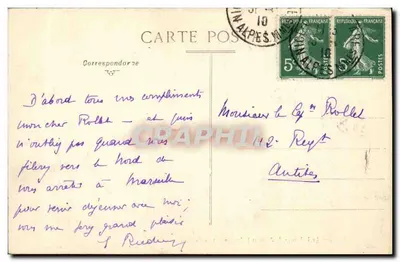 CARTE POSTALE
Correspondance
D'abord tous mes compliments
mon cher Rollet — et puis
n'oubliez pas quand vous
filerez vers le Nord de
vous arrêter à Marseille
pour venir déjeuner avec moi;
vous me ferez grand plaisir
Monsieur le Cne Rollet
112e Regt
Antibes
REPUBLIQUE FRANÇAISE
5c
POSTES
REPUBLIQUE FRANÇAISE
5c
POSTES
ALPES MAR
10